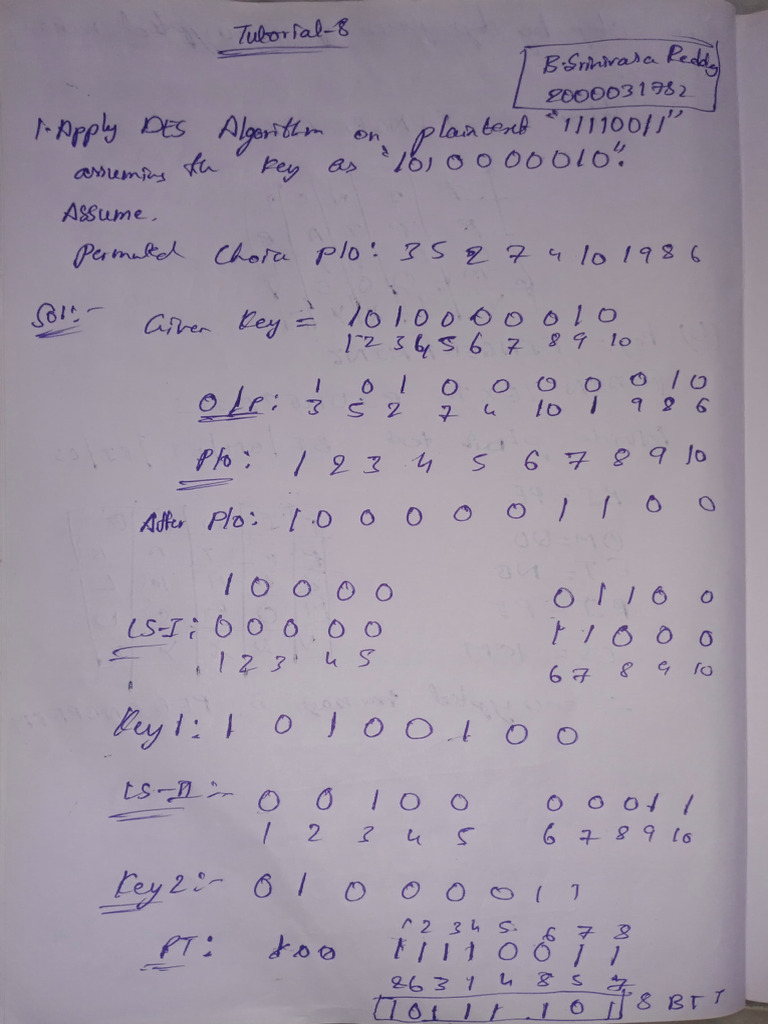 Tutorial-8
B. Srinivasa Reddy
2000031782
1. Apply DES Algorithm on plaintext "11110011"
assuming the key as "1010000010".
Assume,
Permuted Choice P10: 3 5 2 7 4 10 1 9 8 6
Sol:- Given Key = 1 0 1 0 0 0 0 0 1 0
1 2 3 4 5 6 7 8 9 10
1 0 1 0 0 0 0 0 1 0
O/P: 3 5 2 7 4 10 1 9 8 6
P10: 1 2 3 4 5 6 7 8 9 10
After P10: 1 0 0 0 0 0 1 1 0 0
1 0 0 0 0 0 1 1 0 0
LS-I: 0 0 0 0 0 1 1 0 0 0
1 2 3 4 5 6 7 8 9 10
Key 1: 1 0 1 0 0 1 0 0
LS-II:- 0 0 1 0 0 0 0 0 1 1
1 2 3 4 5 6 7 8 9 10
Key 2:- 0 1 0 0 0 0 1 1
1 2 3 4 5 6 7 8
PT: 1 1 1 1 0 0 1 1
2 6 3 1 4 8 5 7
1 0 1 1 1 1 0 1 8 BIT